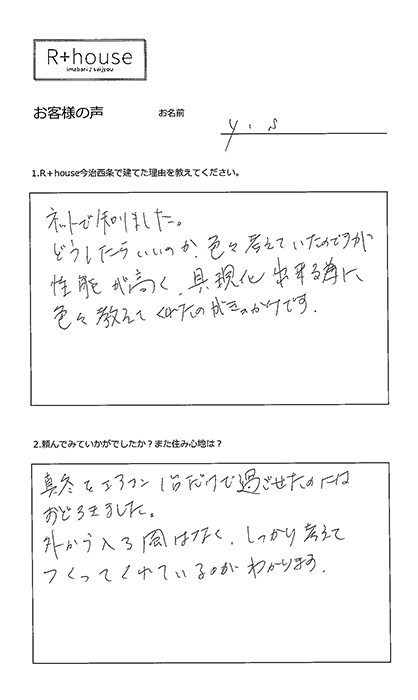 R+house
imabari / saijyou
お客様の声
お名前
y.s
1.R+house今治西条で建てた理由を教えてください。
ネットで知りました。
どうしたらいいのか、色々考えていたのですが
性能が高く、具現化出来る為に、
色々教えてくれたのがきっかけです.
2.頼んでみていかがでしたか？また住み心地は？
真冬をエアコン1台だけで過ごせたのには
おどろきました。
外から入る風はなく、しっかり考えて
つくってくれているのがわかります.